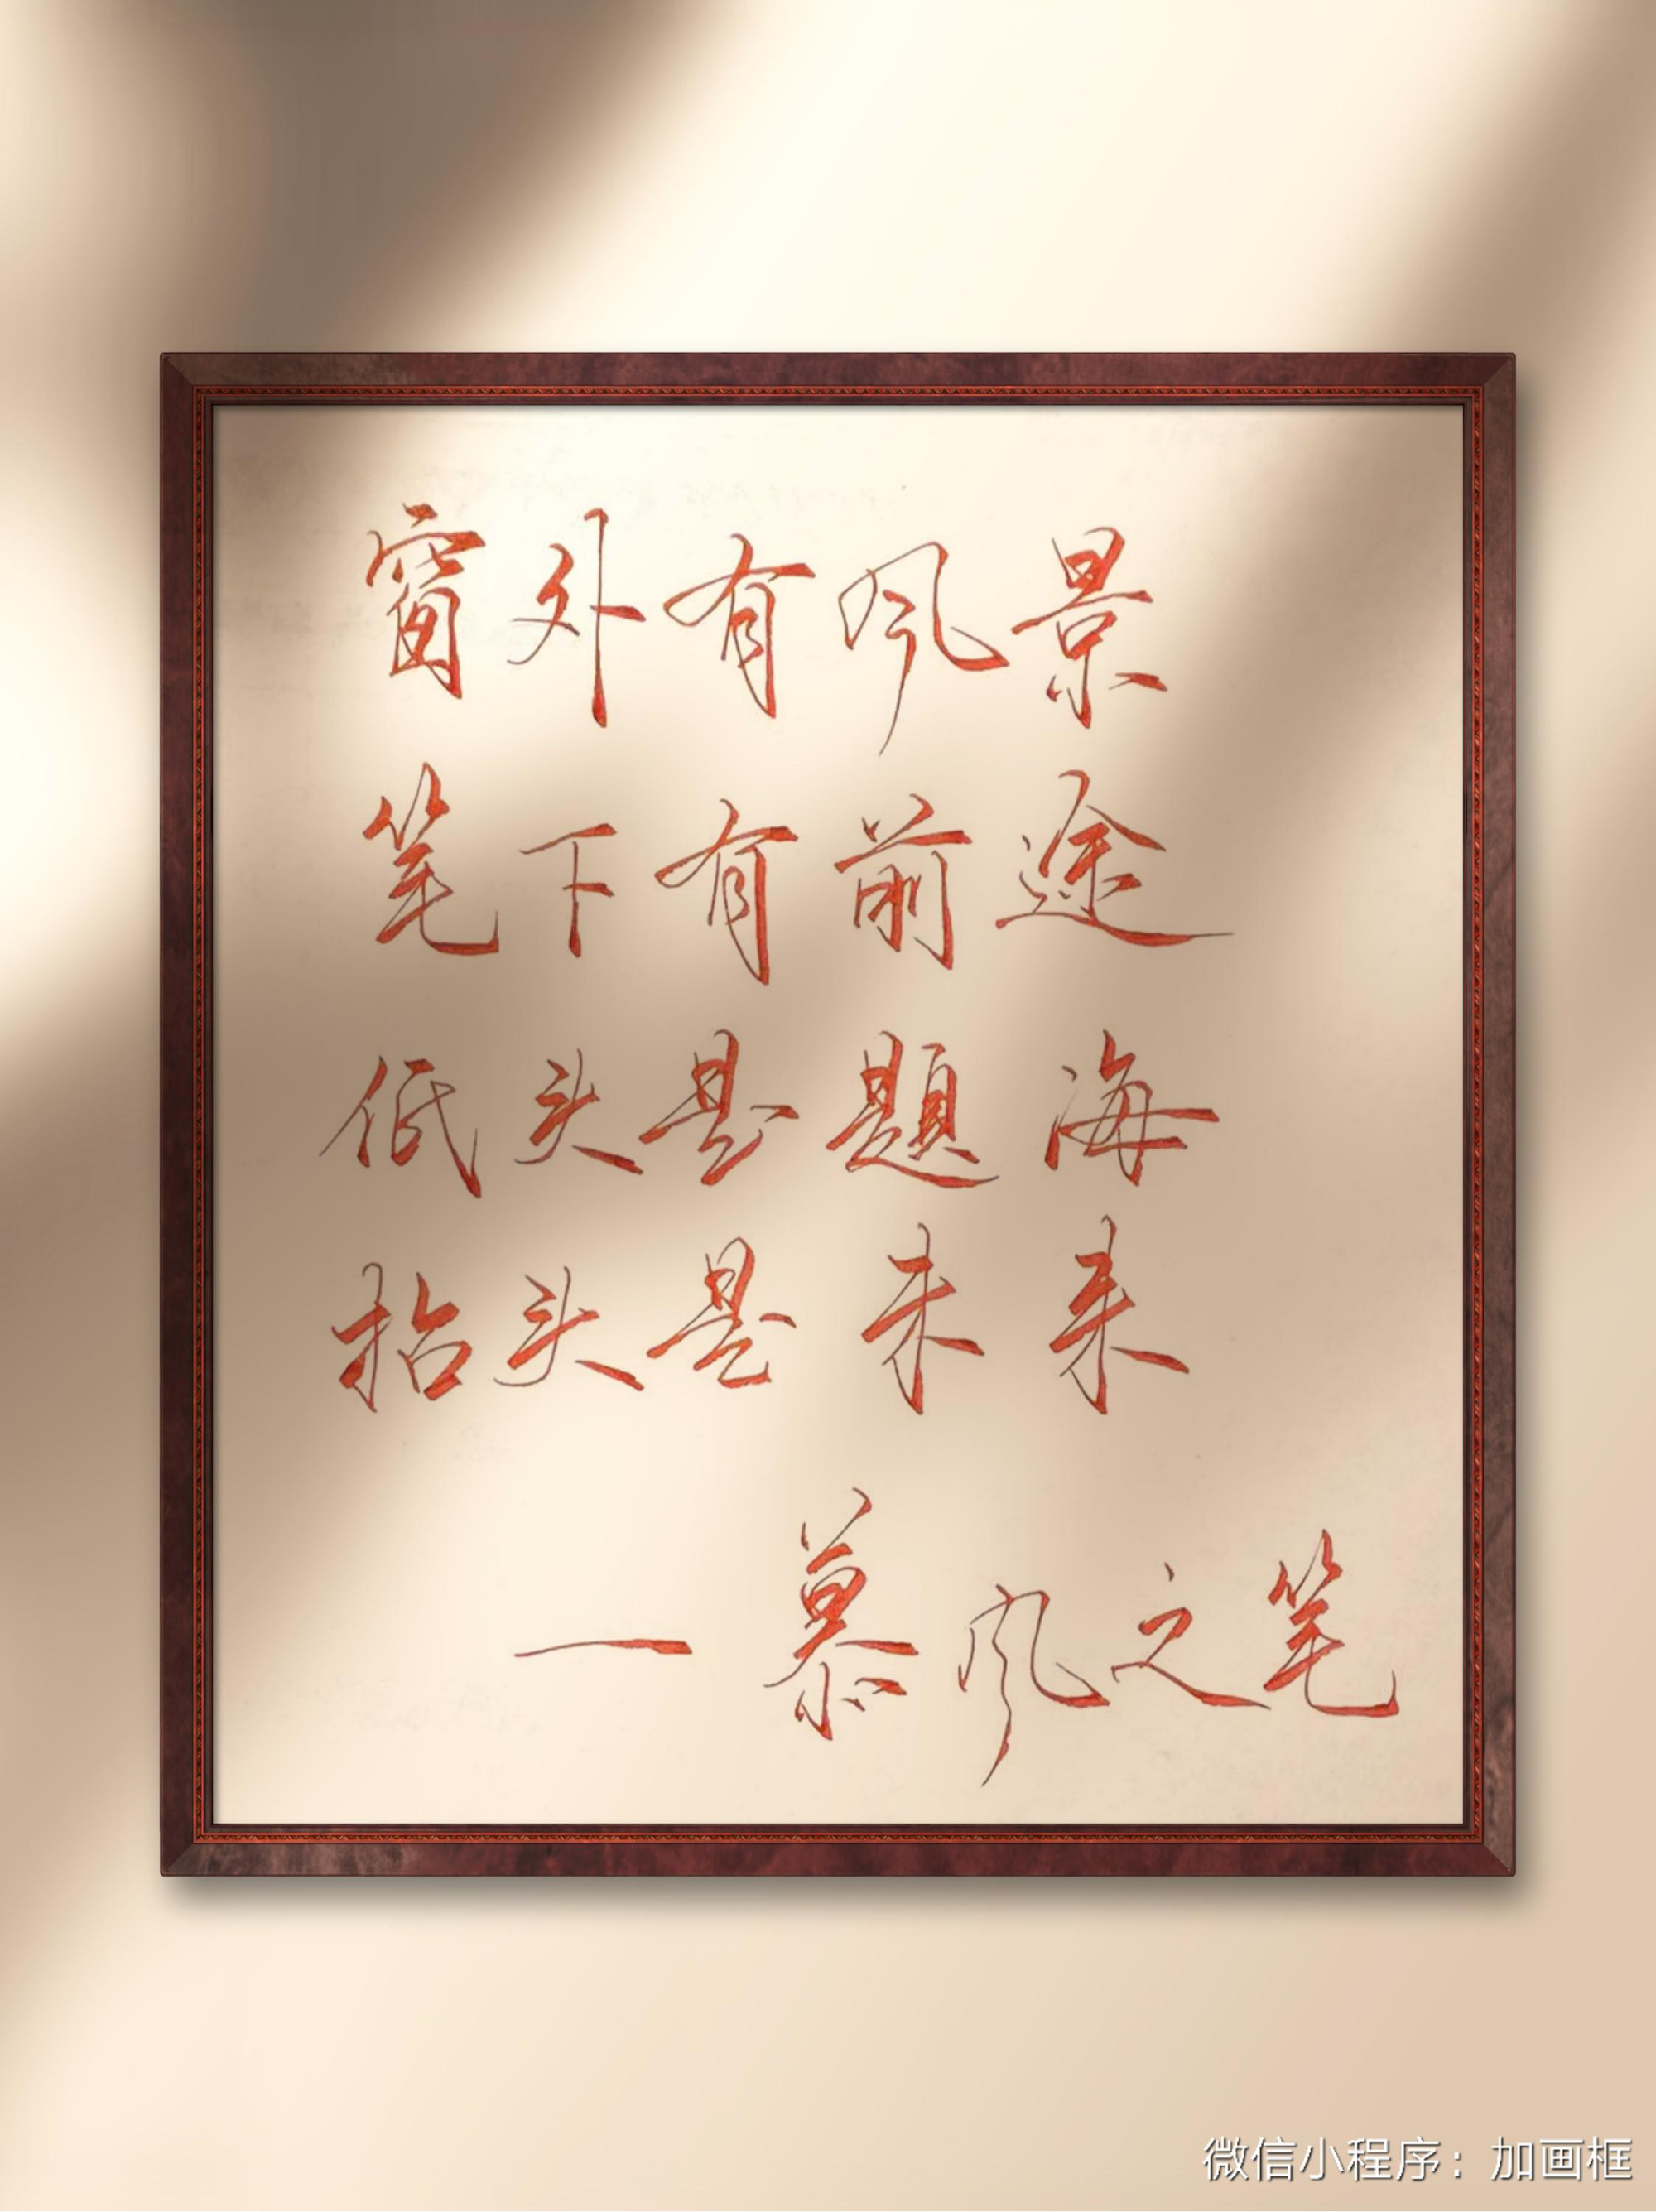 窗外有风景
笔下有前途
低头是题海
抬头是未来
一慕风之笔
微信小程序：加画框